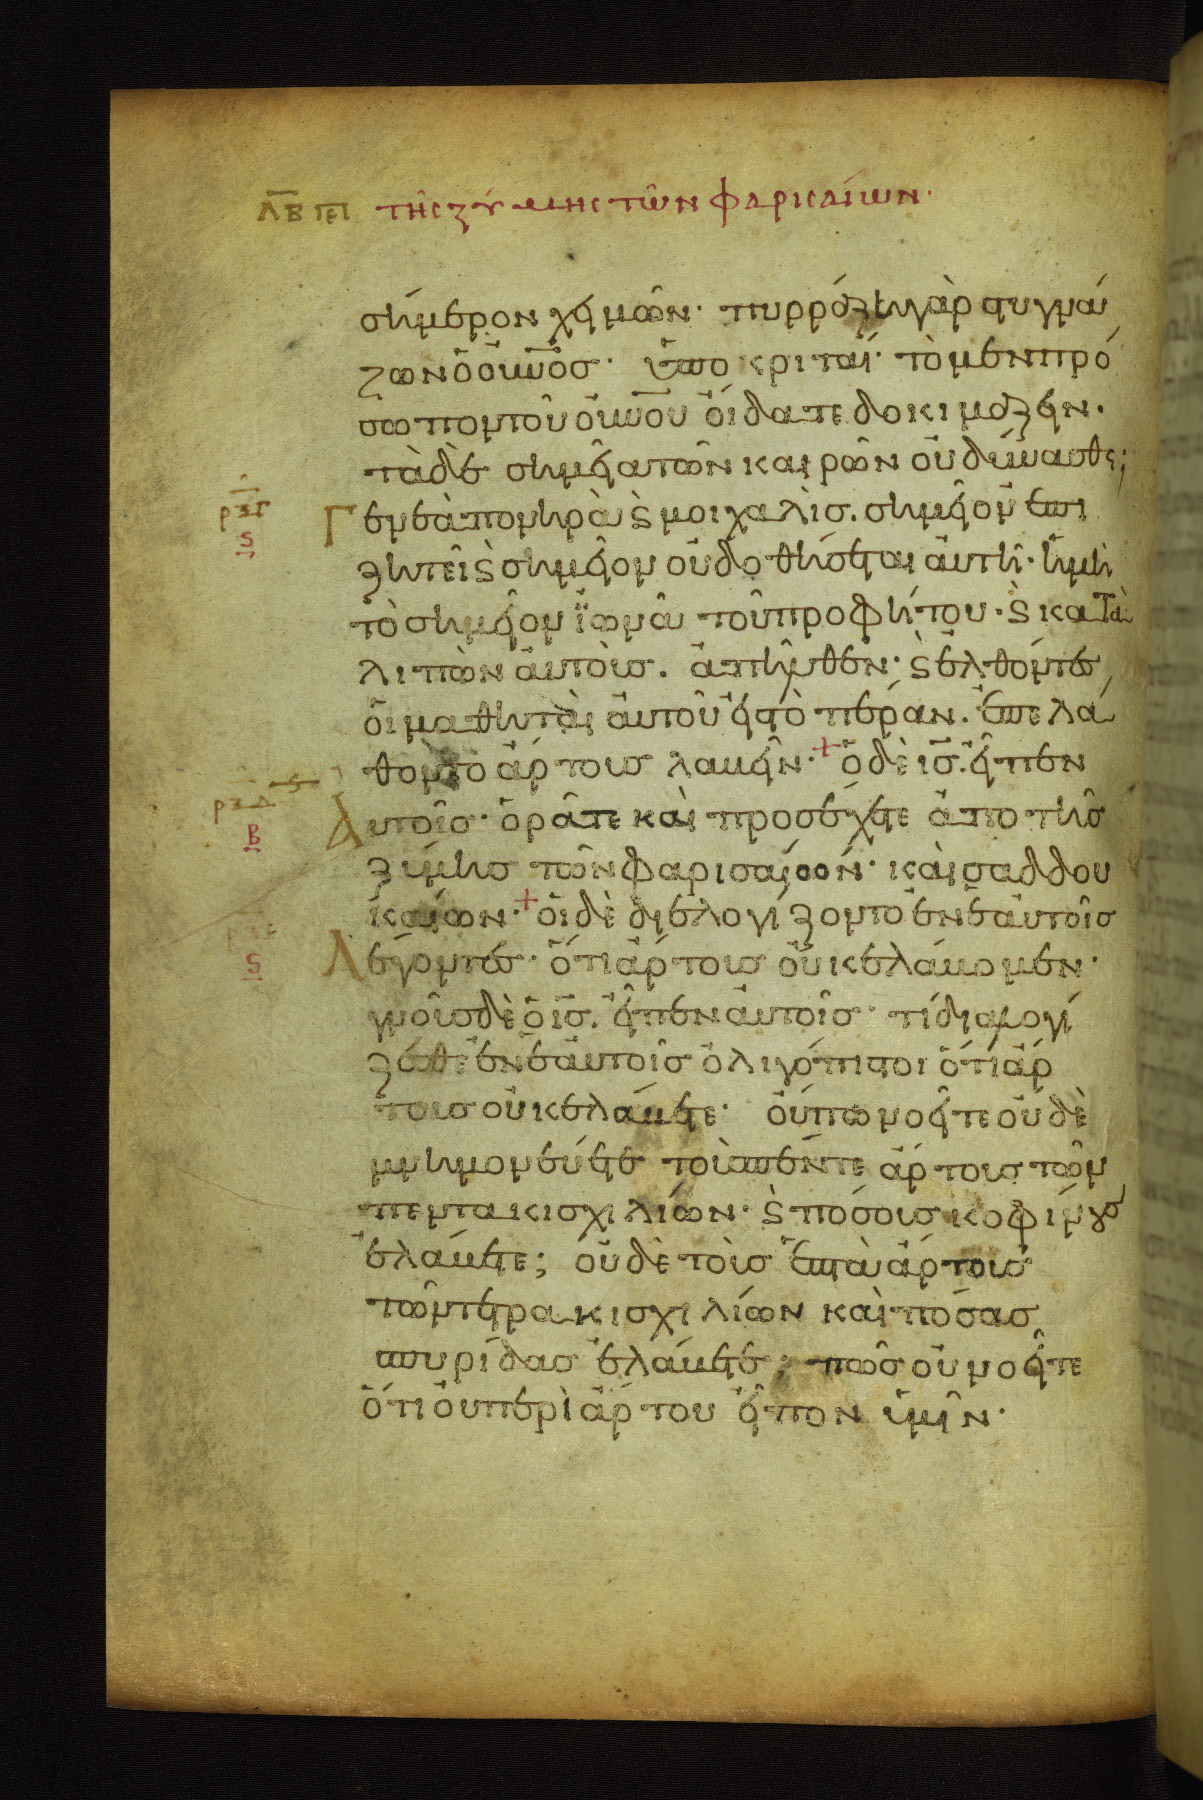 ΛΒ περὶ τῆς ζύμης τῶν φαρισαίων·
σήμερον χειμῶν· πυρράζει γὰρ στυγνά
ζων ὁ οὐνος· ὑποκριταί· τὸ μεν πρό
σωπον τοῦ οὐνου οἴδατε δοκιμάζειν·
τὰ δὲ σημεῖα τῶν καιρῶν οὐ δύνασθε;
ρξγ
ς
Γενεὰ πονηρὰ ϗ μοιχαλὶς. σημεῖον ἐπι
ζητεῖ ϗ σημεῖον οὐ δοθήσεται αὐτῆ· εἰ μὴ
τὸ σημεῖον ἰωνᾶ τοῦ προφήτου· ϗ κατὰ
λιπὼν αὐτοὺς. ἀπῆλθεν· ϗ ἐλθόντες
οἱ μαθηταὶ αὐτοῦ εἰς τὸ πέραν. ἐπελά
θοντο ἄρτους λαβεῖν· + ὁ δὲ ις. εἶπεν
ρξδ
β
Αυτοῖς· ὁρᾶτε καὶ προσέχετε ἀπο τῆς
ζύμης τῶν φαρισαίων· καὶ σαδδου
καίων· + οἱ δὲ διελογίζοντο ἐν ἑαυτοῖς
ς
Λέγοντες· ὅτι ἄρτους οὐκ ελάβομεν·
γνοῦς δὲ ὁ ις. εἶπεν αὐτοῖς· τί διαλογί
ζεσθε ἐν ἑαυτοῖς ὀλιγόπιστοι ὅτι ἄρ
τους οὐκ ελάβετε· οὔπω νοεῖτε οὐδὲ
μνημονεύετε τοὺς πέντε ἄρτους τῶν
πεντακισχιλίων· ϗ πόσους κοφίνους
ἐλάβετε; οὐδὲ τοὺς ἑπτὰ ἄρτους
τῶν τετρακισχιλίων καὶ πόσας
σπυρίδας ἐλάβετε; πῶς οὐ νοεῖτε
ὅτι οὐ περὶ ἄρτου εἶπον ὑμῖν·